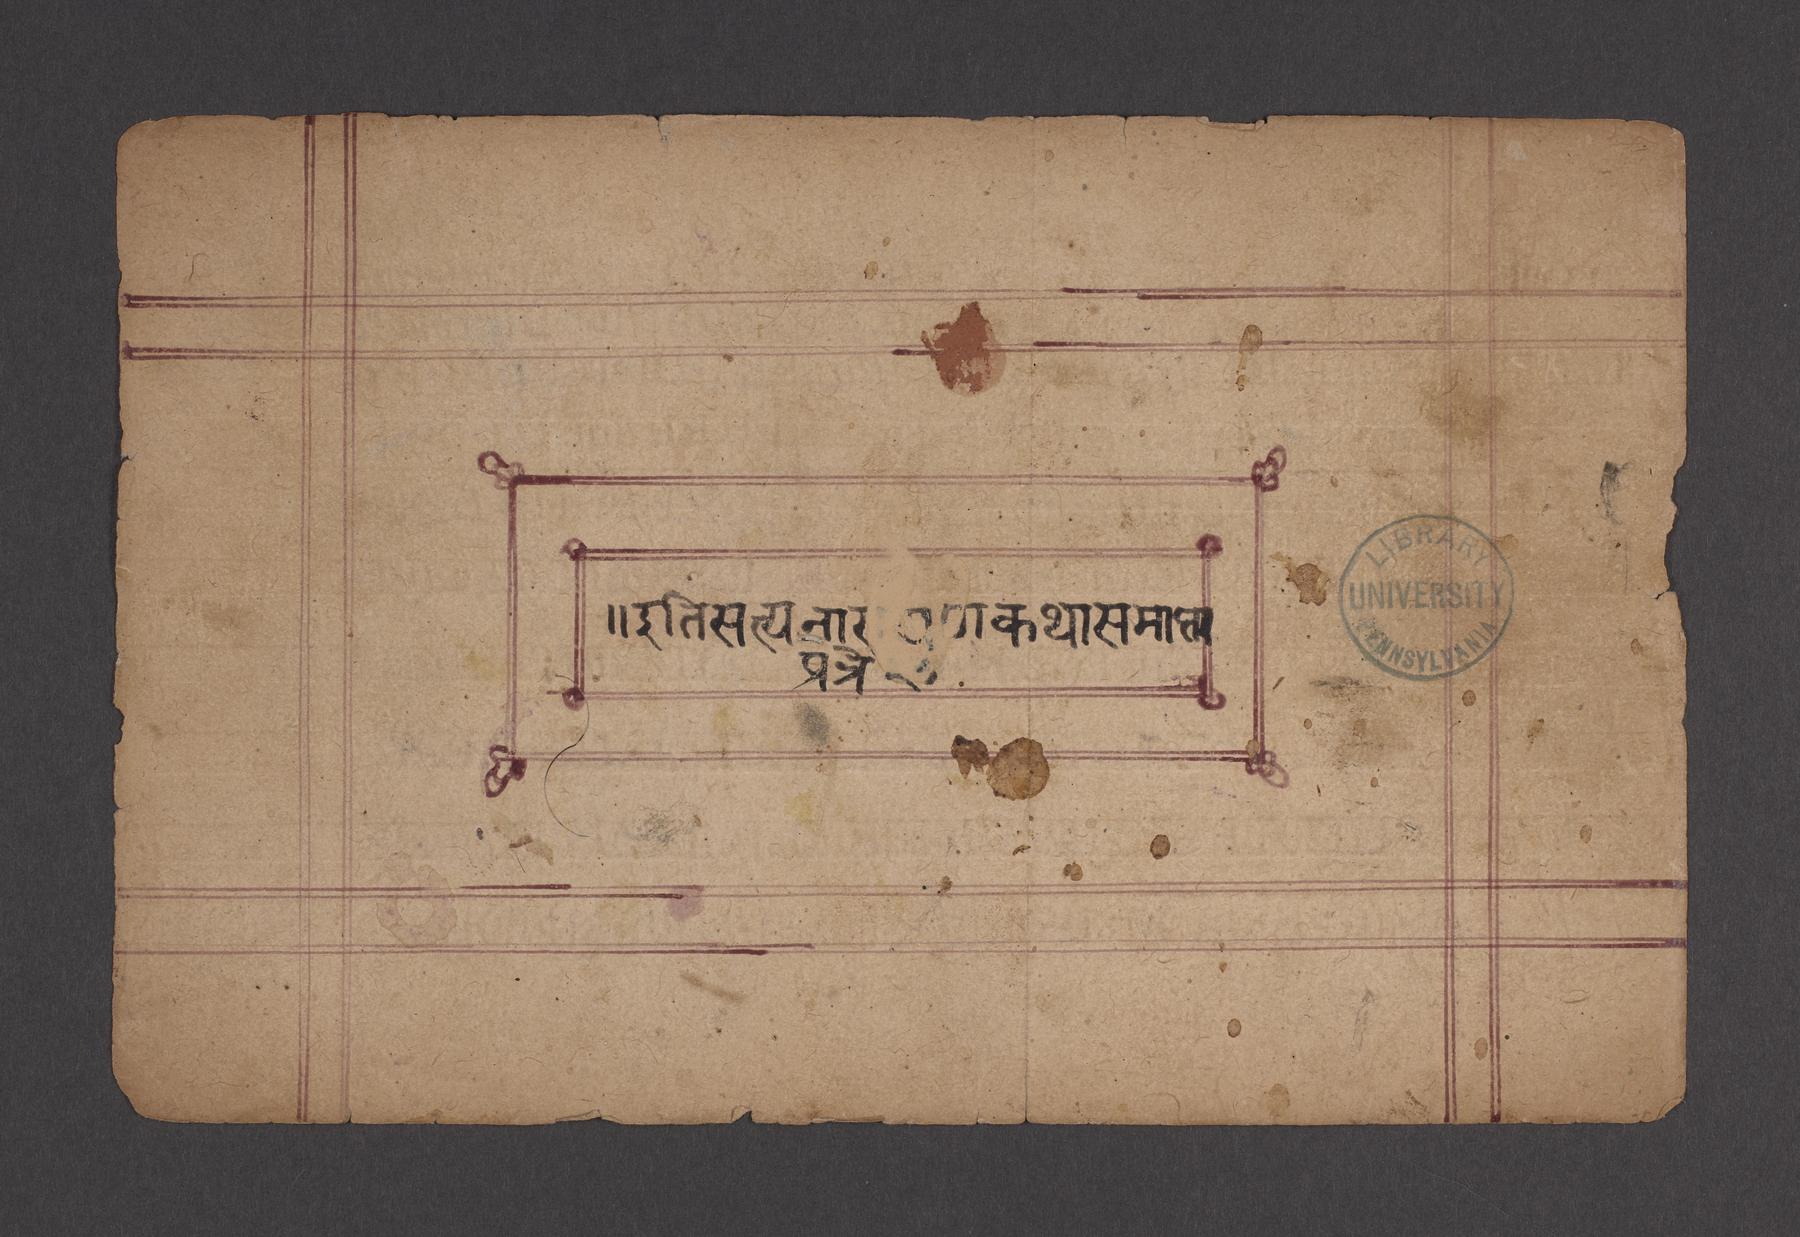 ॥इतिसत्यनारायणकथासमाप्त
पत्रे
LIBRARY
UNIVERSITY
PENNSYLVANIA